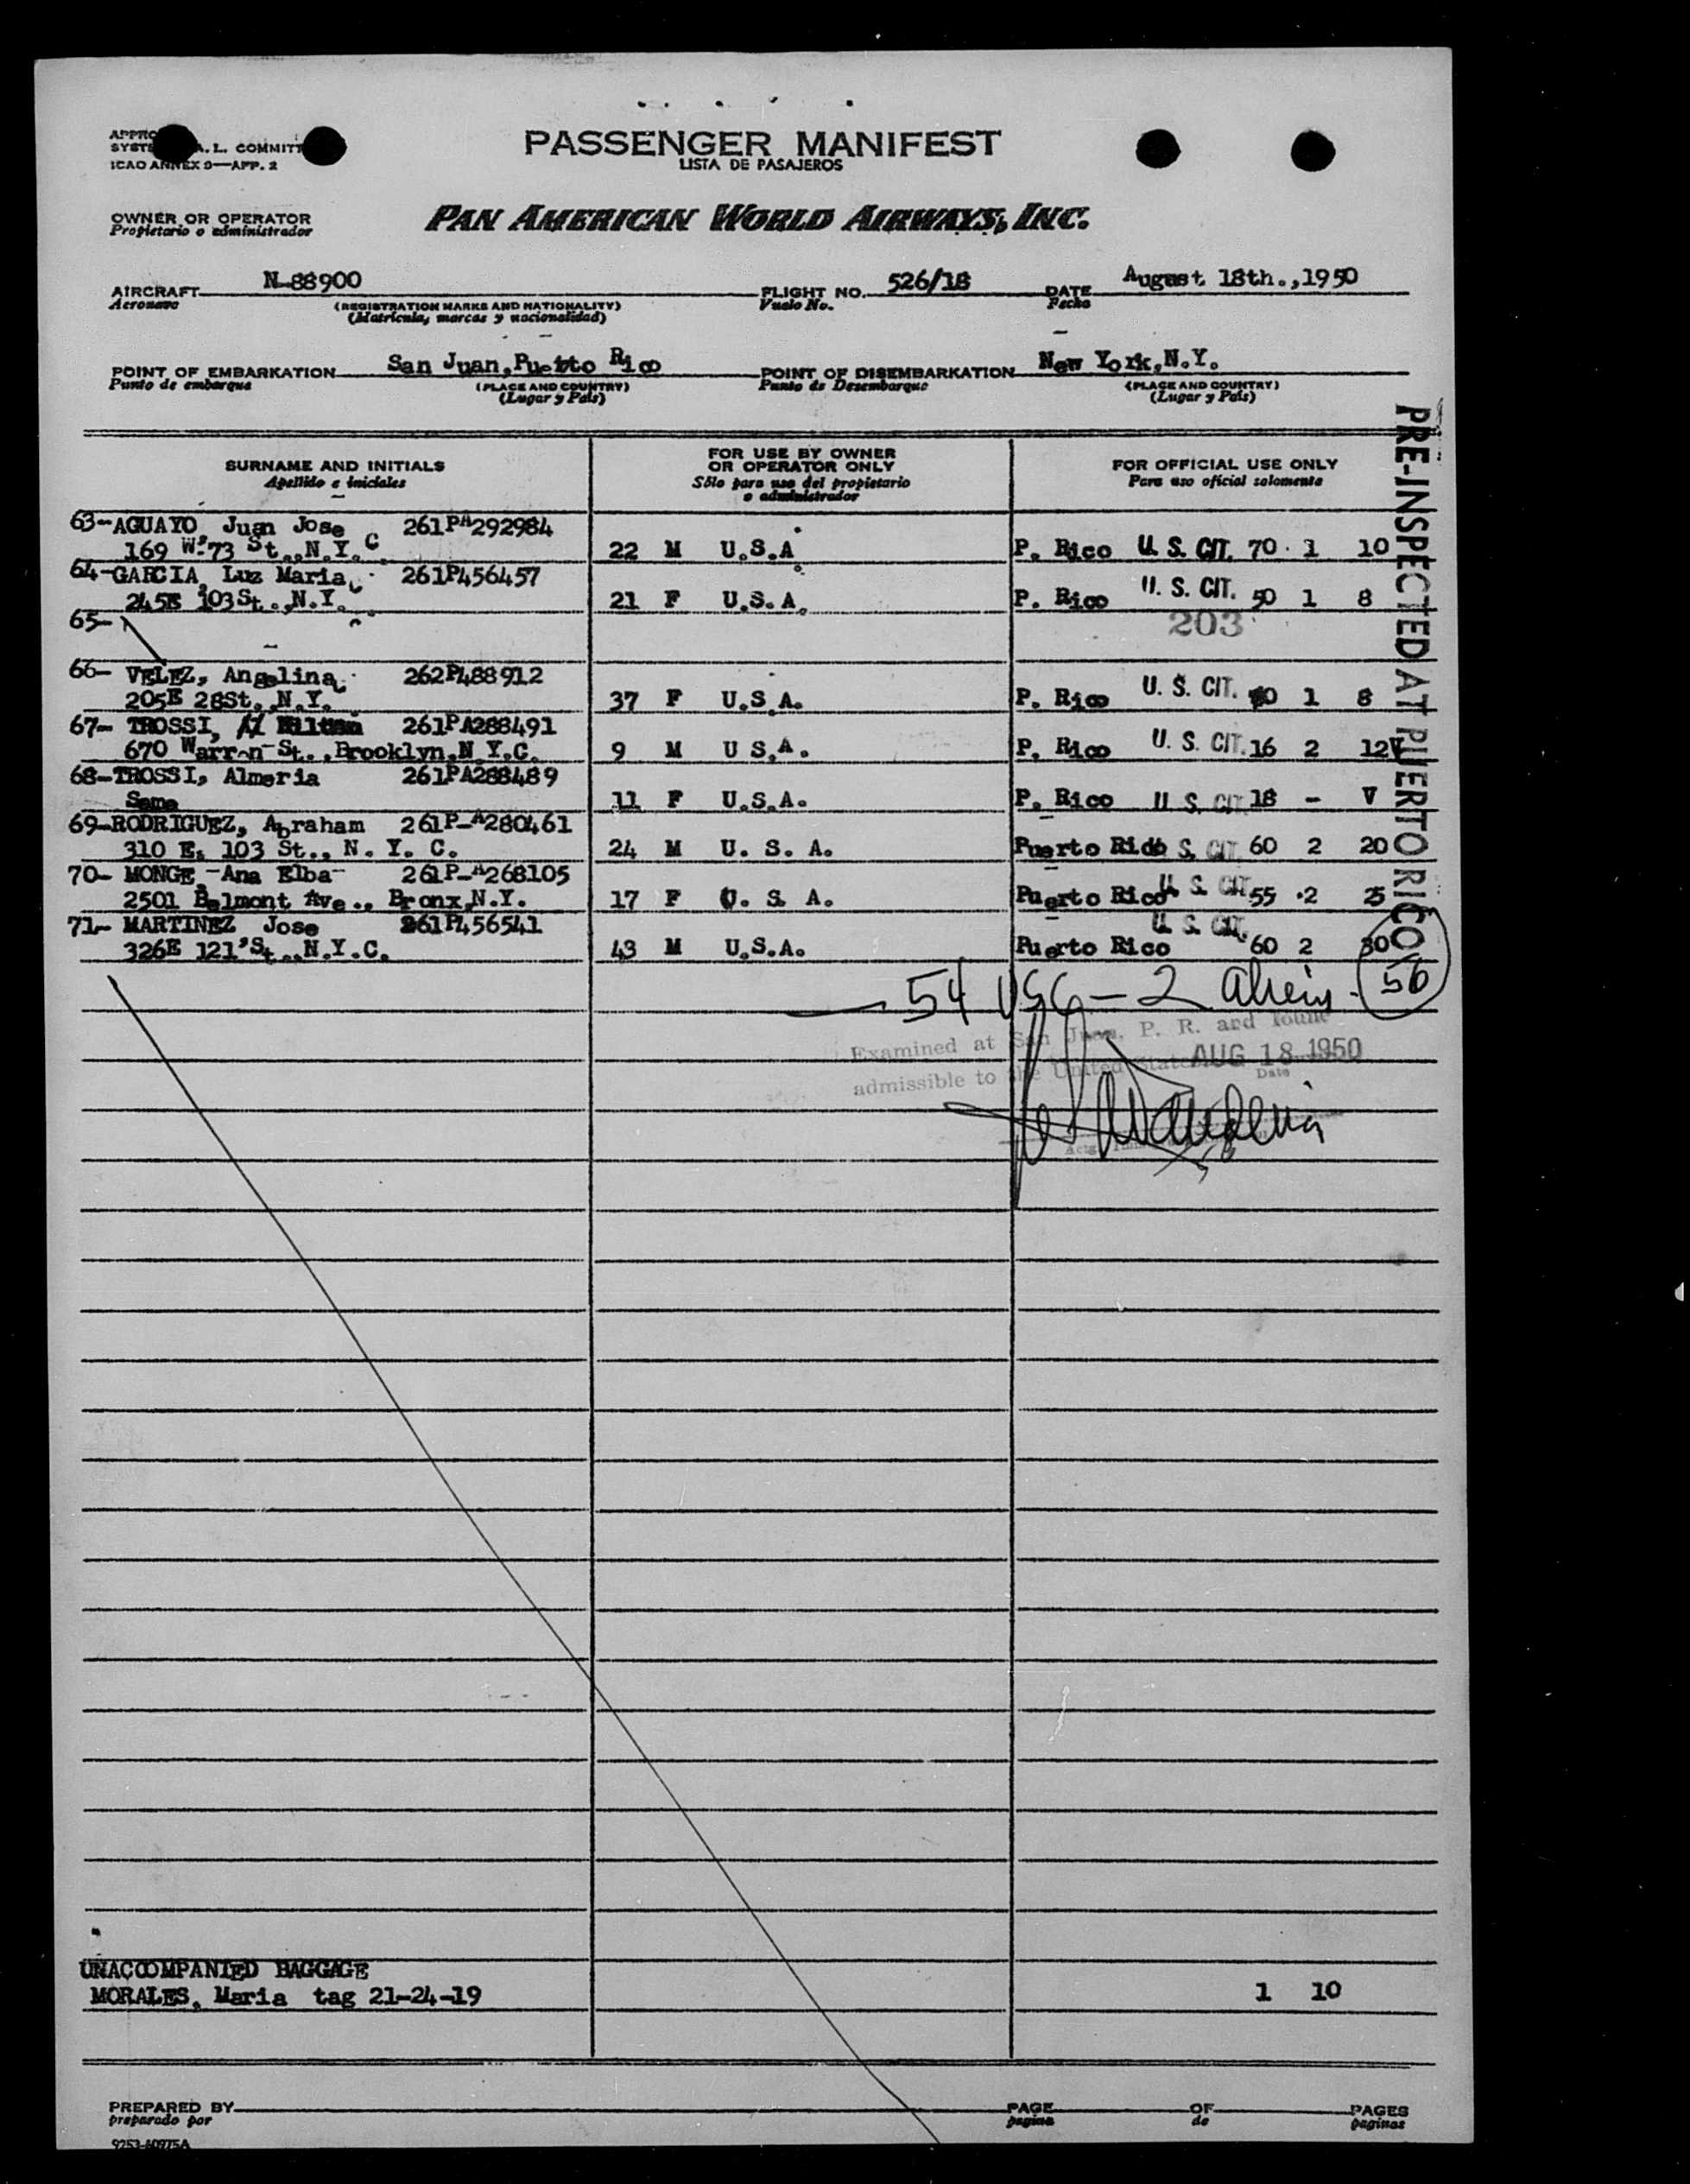 PASSENGER MANIFEST
LISTA DE PASAJEROS
APPRO
SYSTE A. L. COMMITT
ICAO ANNEX 9—APP. 2
OWNER OR OPERATOR
Propietario o administrador
PAN AMERICAN WORLD AIRWAYS, INC.
AIRCRAFT N-88900 FLIGHT NO. 526/18 DATE August 18th.,1950
Aeronave (REGISTRATION MARKS AND NATIONALITY) Vuelo No. Fecha
(Matricula, marcas y nacionalidad)
POINT OF EMBARKATION San Juan, Puerto Rico POINT OF DISEMBARKATION New York,N.Y.
Punto de embarque (PLACE AND COUNTRY) Punto de Desembarque (PLACE AND COUNTRY)
(Lugar y Pais) (Lugar y Pais)
PRE-INSPECTED AT PUERTO RICO
SURNAME AND INITIALS FOR USE BY OWNER OR OPERATOR ONLY FOR OFFICIAL USE ONLY
Apellido e iniciales Sólo para uso del propietario o administrador Para uso oficial solamente
63-AGUAYO, Juan Jose 261PA292984
169 W. 73 St.,N.Y.C 22 M U.S.A P. Rico U. S. CIT. 70 1 10
64-GARCIA, Luz Maria 261P456457
245E 103St.,N.Y. 21 F U.S.A. P. Rico U. S. CIT. 50 1 8
65- 203
66- VELEZ, Angelina 262P488912
205E 28St.,N.Y. 37 F U.S.A. P. Rico U. S. CIT. 1 8
67- TROSSI, 261PA288491
670 Warren St.,Brooklyn,N.Y.C. 9 M U S.A. P. Rico U. S. CIT. 16 2 12V
68-TROSSI, Almeria 261PA288489
Same 11 F U.S.A. P. Rico U. S. CIT 18 - V
69-RODRIGUEZ, Abraham 261P-A280461
310 E. 103 St., N. Y. C. 24 M U. S. A. Puerto Rico S. CIT. 60 2 20
70- MONGE -Ana Elba- 261P-A268105
2501 Belmont Ave., Bronx,N.Y. 17 F U. S. A. Puerto Rico U. S. CIT 55 2 25
71- MARTINEZ Jose 261P456541
326E 121'St.,N.Y.C. 43 M U.S.A. Puerto Rico U. S. CIT. 60 2 30
54 USC - 2 aliens - 56
Examined at San Juan, P. R. and found
admissible to the United States AUG 18 1950
Date
UNACCOMPANIED BAGGAGE
MORALES, Maria tag 21-24-19 1 10
PREPARED BY PAGE OF PAGES
preparado por pagina de paginas
9253-A0975A